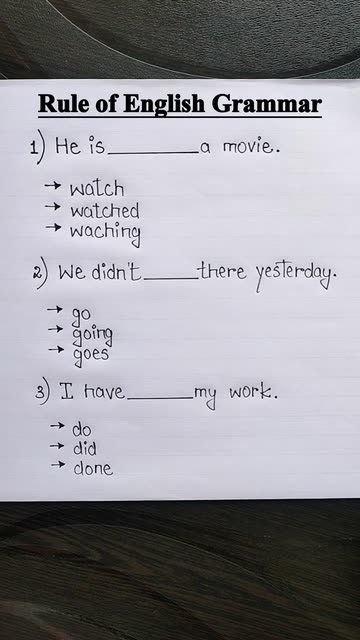 Rule of English Grammar
1) He is________a movie.
→ watch
→ watched
→ waching
2) We didn't_____there yesterday.
→ go
→ going
→ goes
3) I have______my work.
→ do
→ did
→ done